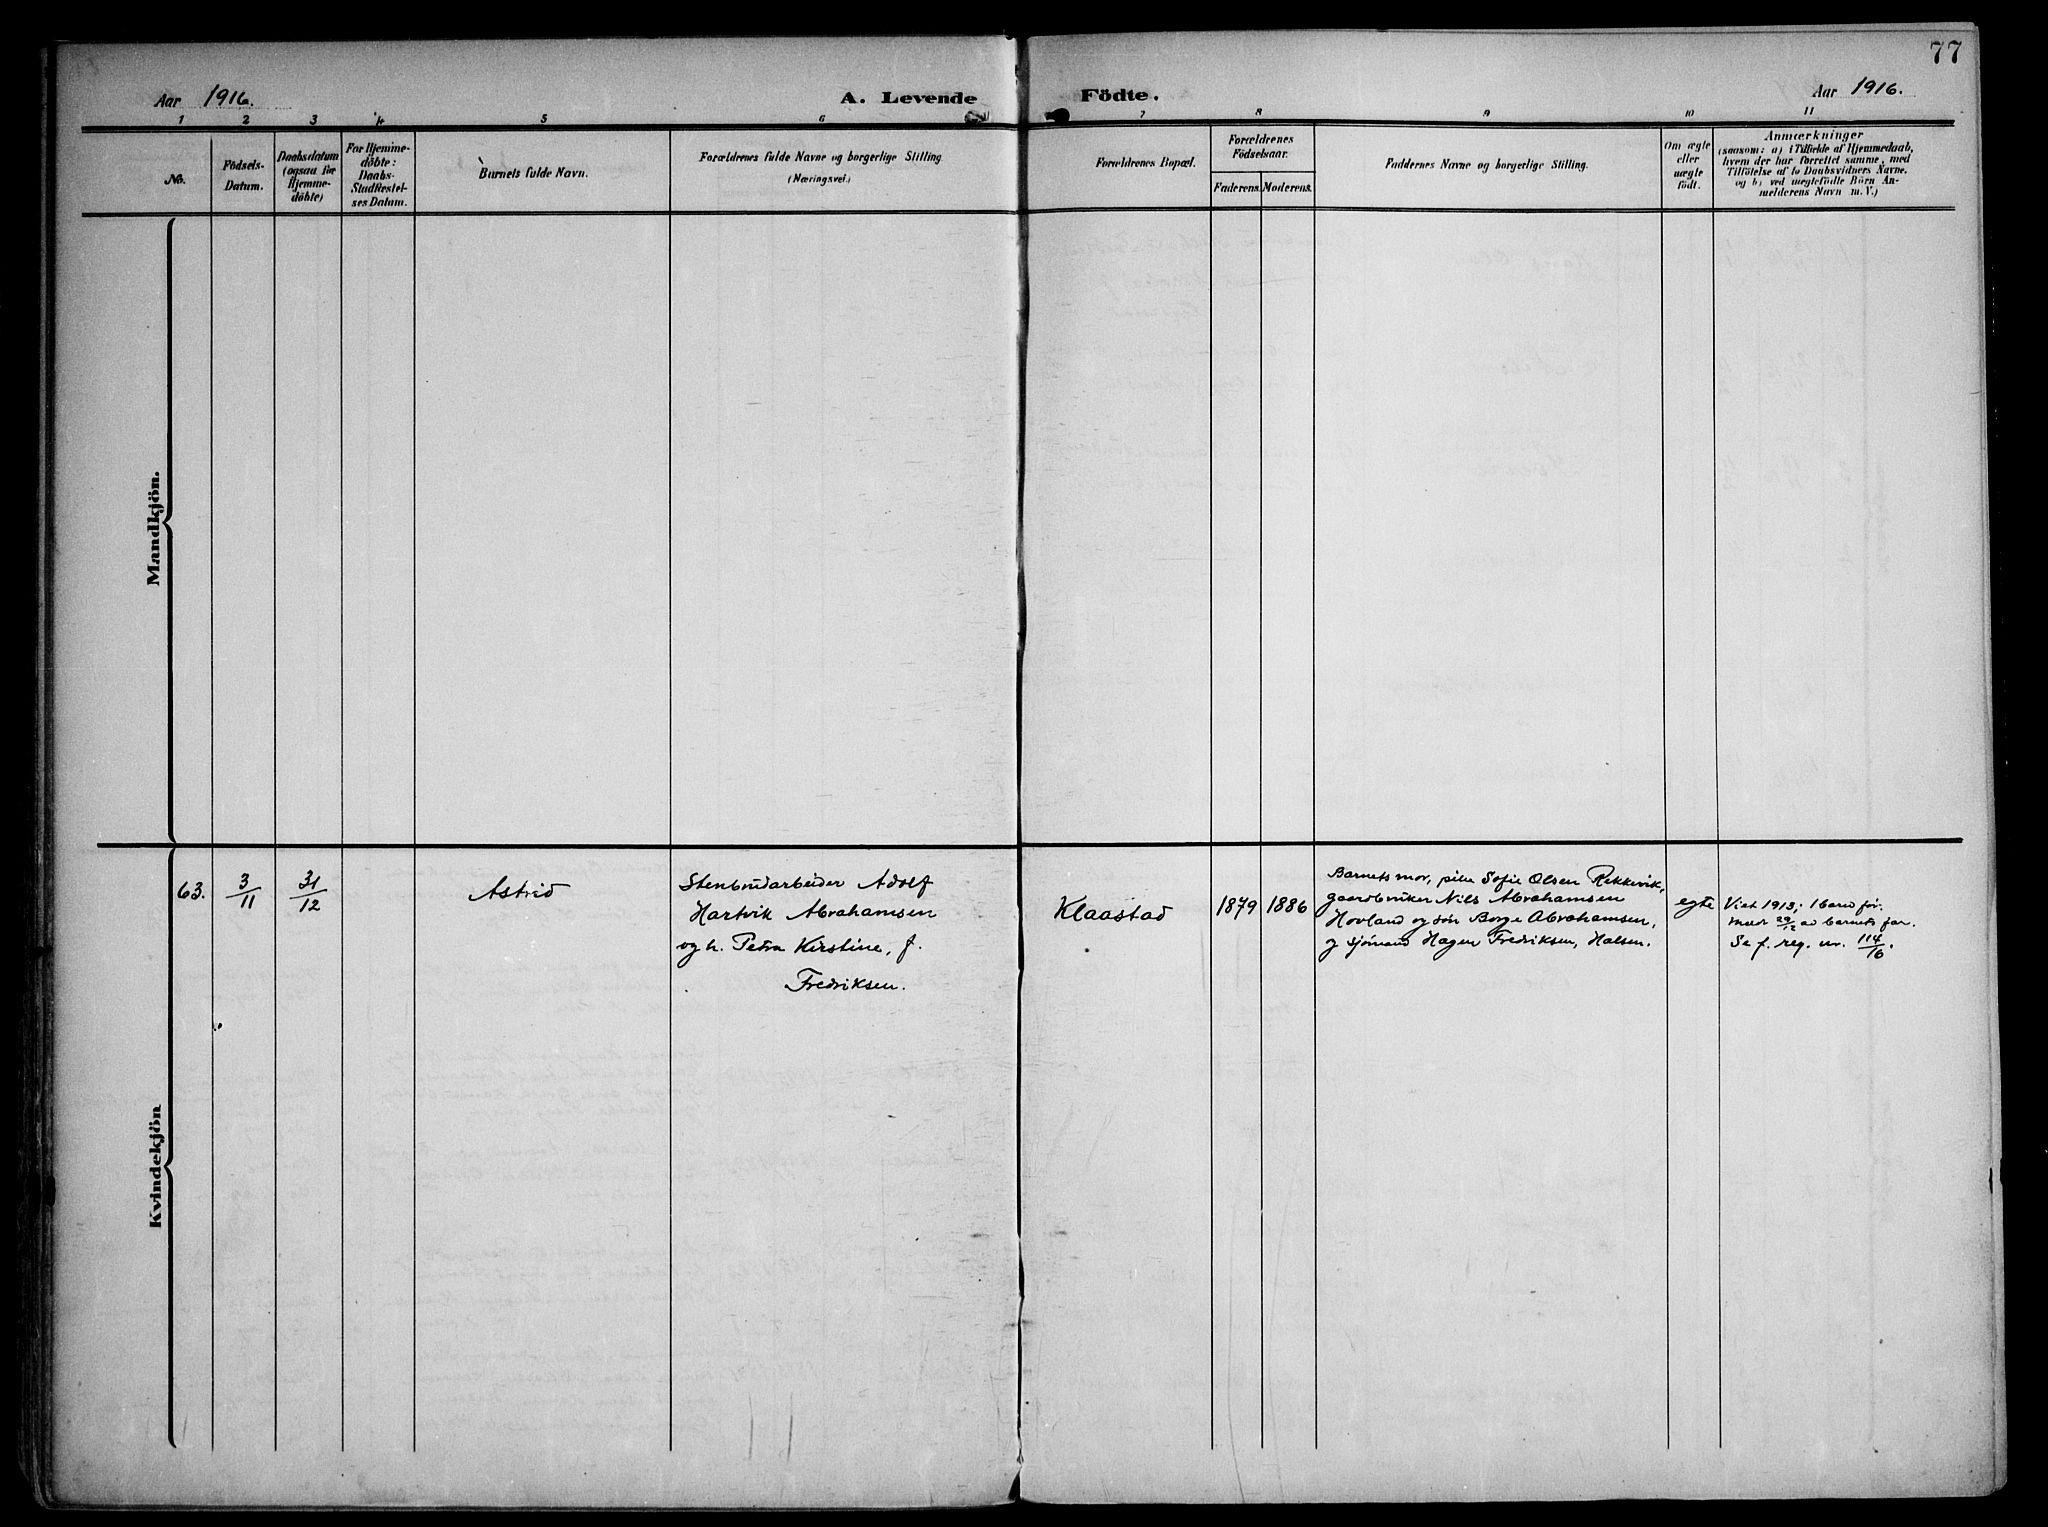 77
Aar 1916.
A. Levende Födte.
Aar 1916.
1 2 3 4 5 6 7 8 9 10 11
No.
Födsels-
Datum.
Daabsdatum
(ogsaa for
Hjemme-
döbte)
For Hjemme-
döbte:
Daabs-
Stadfæstel-
ses Datum.
Barnets fulde Navn.
Forældrenes fulde Navne og borgerlige Stilling
(Næringsvei.)
Forældrenes Bopæl.
Forældrenes
Födselsaar.
Faderens. Moderens.
Faddernes Navne og borgerlige Stilling.
Om ægte
eller
uægte
född.
Anmærkninger
(saasom: a) i Tilfælde af Hjemmedaab,
hvem der har forrettet samme, med
Tilföielse af to Daabsvidners Navne,
og b) ved uægtefödte Börn An-
melderens Navn m. V.)
Mandkjön.
Kvindekjön
63.
3/11
31/12
Astrid
Stenbrudarbeider Adolf
Hartvik Abrahamsen
og h. Petra Kirstine, f.
Fredriksen.
Klaastad
1879
1886
Barnets mor, pike Sofie Olsen Rekkevik,
gaardbruker Nils Abrahamsen
Hovland og sön Borge Abrahamsen,
og sjömand Hagen Fredriksen, Halsen.
egte
Viet 1913; 1 barn för.
29/12 av barnets far.
Se f. reg. nr. 114/16.